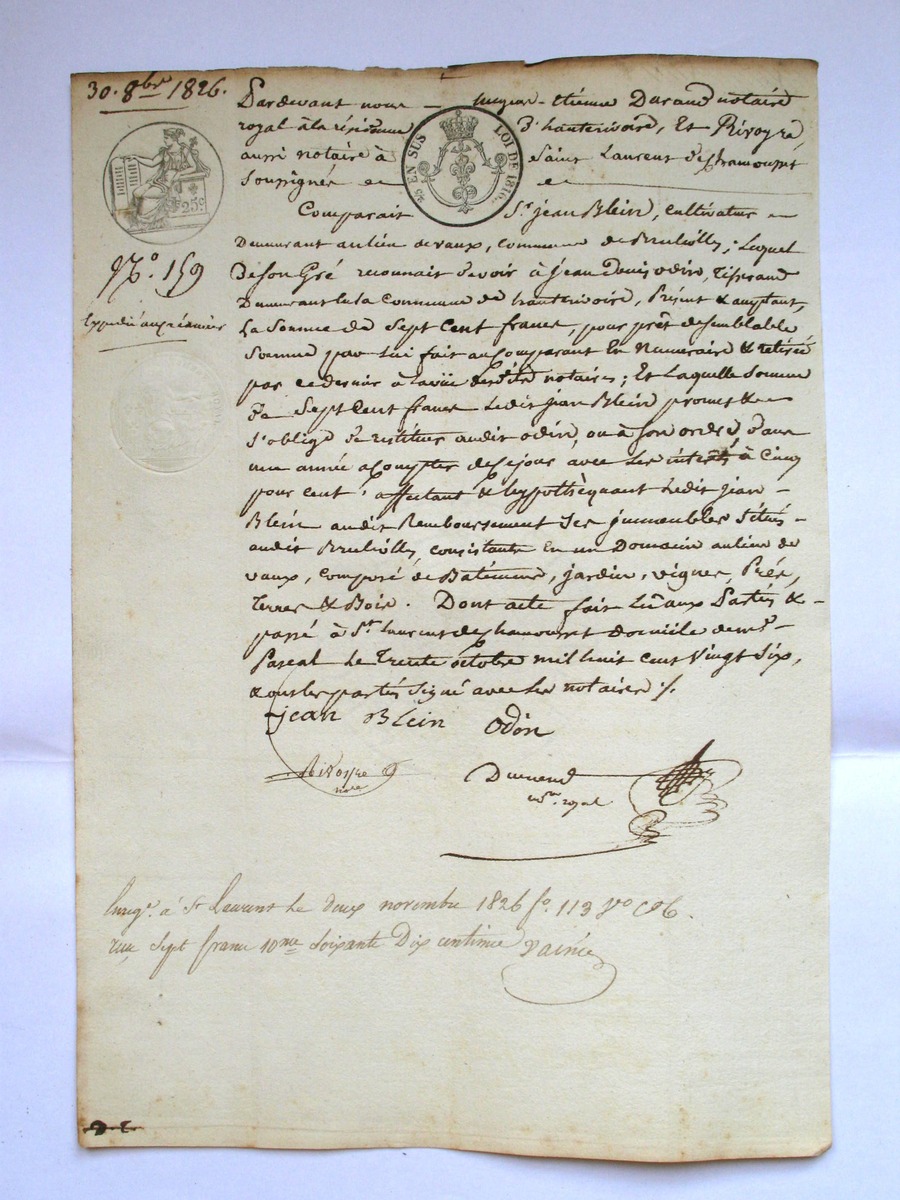 30. 8bre 1826.
Pardevant nous Jacques Etienne Durand notaire
royal à la résidence d'hauterivoire, Et Rivoyre
aussi notaire à Saint Laurent de chamousset
Soussignés
EN SUS LOI DE 1816.
25c
Comparait Sr. jean Blein, Cultivateur
Demeurant au lieu de vaux, Commune de Brulliolles, Lequel
De son Gré reconnait devoir à Jean Denis odin, Tisserand
Demeurant en la Commune de hauterivoire, Présent & acceptant,
La Somme de Sept Cent francs, pour prêt de semblable
Somme par Lui fait au Comparant En Numeraire & retirée
par ce dernier à la vüe desdits notaires; Et Laquelle Somme
de Sept Cent francs Ledit jean Blein promet &
s'oblige de restituer audit odin, ou à son ordre dans
une année à Compter de ce jour avec les intérêts à Cinq
pour cent; affectant & hypothèquant Ledit jean
Blein audit Remboursement Ses immeubles Situés
audit Brulliolles, consistants En un Domaine au lieu de
vaux, Composé de Batiments, jardin, vignes, Prés,
Terres & Bois. Dont acte fait Lu aux Parties &
passé à St. Laurent de chamousset domicile de me.
Pascal Le Trente octobre mil huit cent Vingt Six,
& ont les parties Signé avec Les notaires ./.
No. 159
Expédié au créancier
jean Blein odin
Rivoyre
nore
Durand
nore. royal
Enregé. à St Laurent Le deux novembre 1826 fo. 113 Vo C 6.
reçu Sept francs 10me Soixante Dix centimes